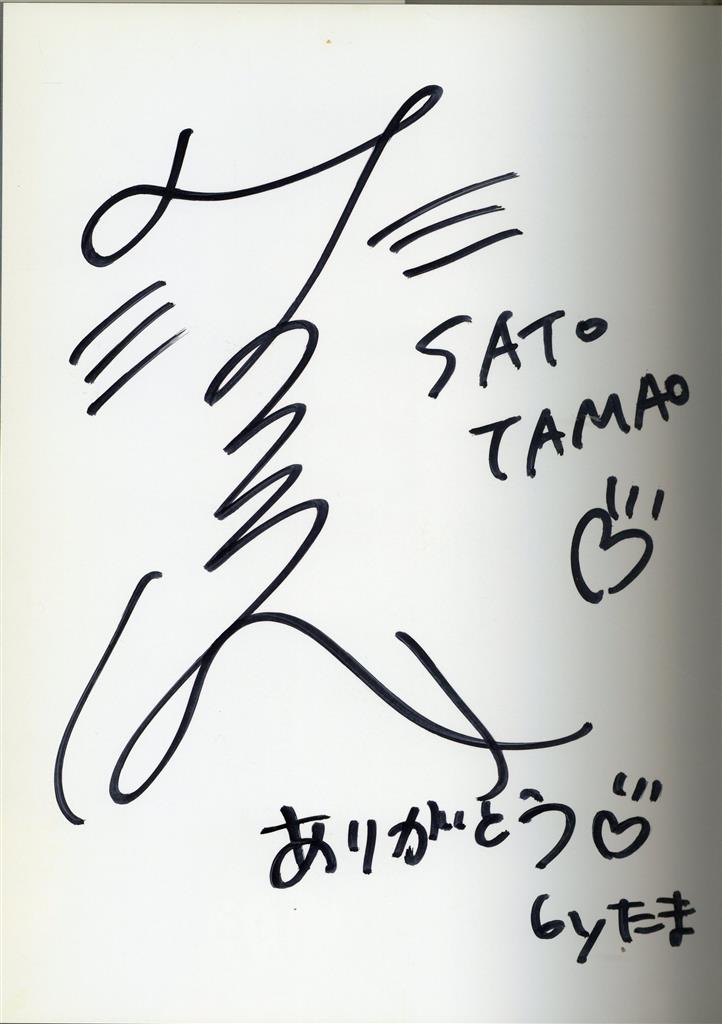 SATO
TAMAO ♡
ありがとう♡
by たま